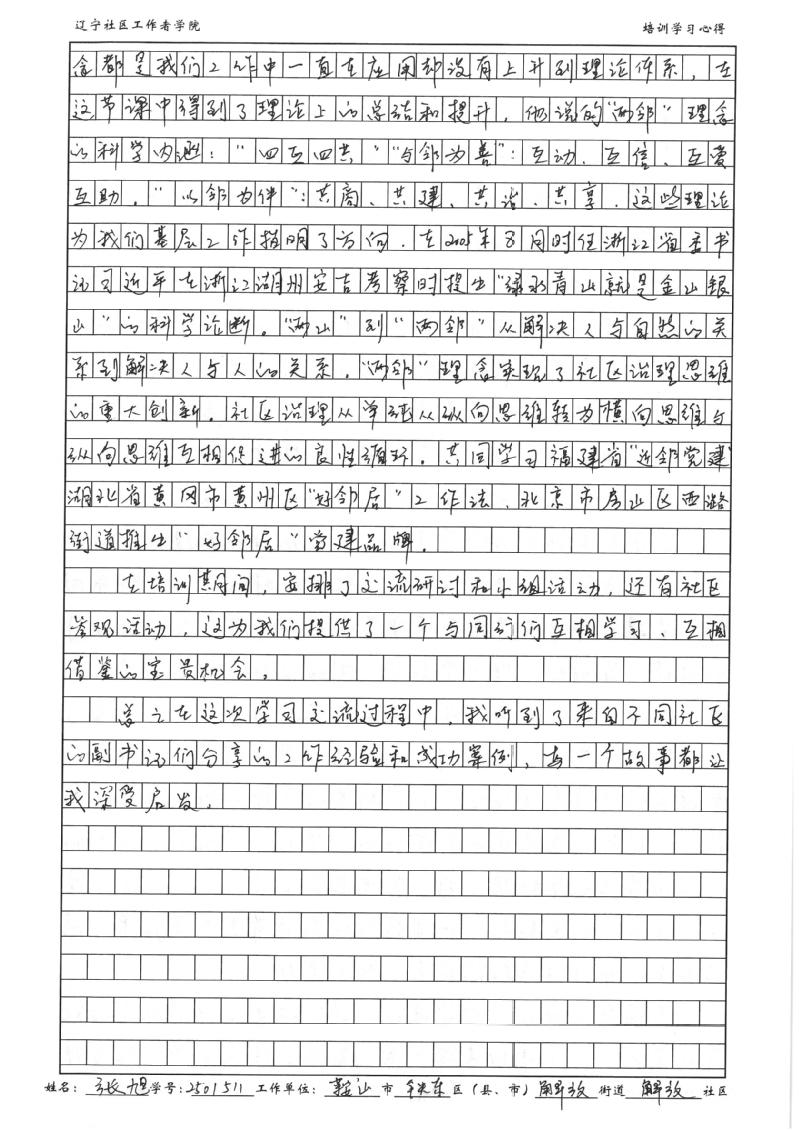 辽宁社区工作者学院 培训学习心得
念都是我们工作中一直在应用却没有上升到理论体系，在
这节课中得到了理论上的总结和提升。他说的"两邻"理念
的科学内涵："四互四共""与邻为善"：互动、互信、互爱
互助。"以邻为伴"：共商、共建、共治、共享，这些理论
为我们基层工作指明了方向。在2005年8月同时任浙江省委书
记习近平在浙江湖州安吉考察时提出"绿水青山就是金山银
山"的科学论断。"两山"到"两邻"从解决人与自然的关
系到解决人与人的关系，"两邻"理念实现了社区治理思维
的重大创新。社区治理从单纯从纵向思维转为横向思维与
纵向思维互相促进的良性循环。共同学习福建省"近邻党建"
湖北省黄冈市黄州区"好邻居"工作法、北京市房山区西潞
街道推出"好邻居"党建品牌。
在培训期间，安排了交流研讨和小组活动，还有社区
参观活动，这为我们提供了一个与同行们互相学习、互相
借鉴的宝贵机会。
总之在这次学习交流过程中，我听到了来自不同社区
的副书记们分享的工作经验和成功案例，每一个故事都让
我深受启发。
姓名：张旭 学号:2501511 工作单位：鞍山市 铁东 区（县、市） 解放 街道 解放 社区